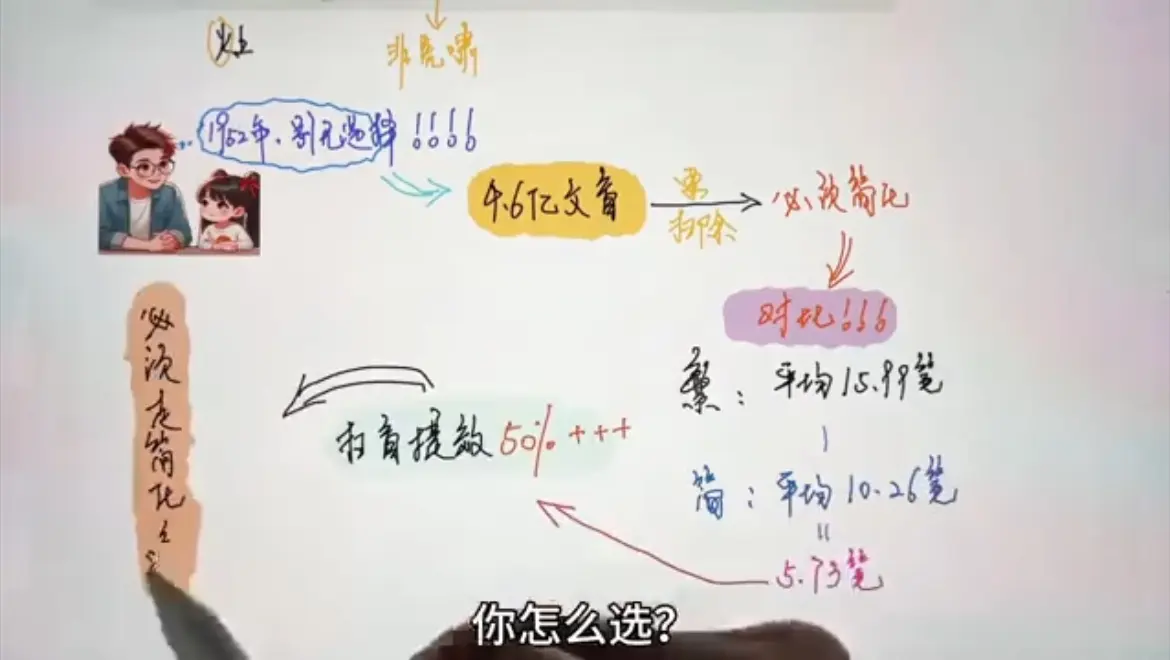 灶
非虎啸
1952年,别无选择!!!!
4.6亿文盲
要
扫除
必须简化
对比!!!
繁:平均15.99笔
简:平均10.26笔
=
5.73笔
扫盲提效50%+++
必须走简化
你怎么选?